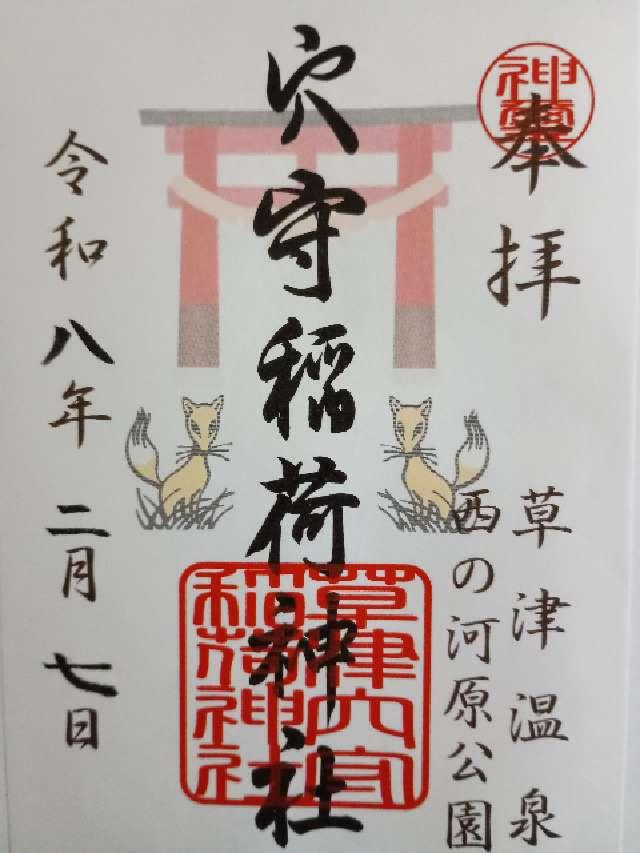 奉拝
神璽
草津温泉
西の河原公園
穴守稲荷神社
草津穴守
稲荷神社
令和八年二月七日